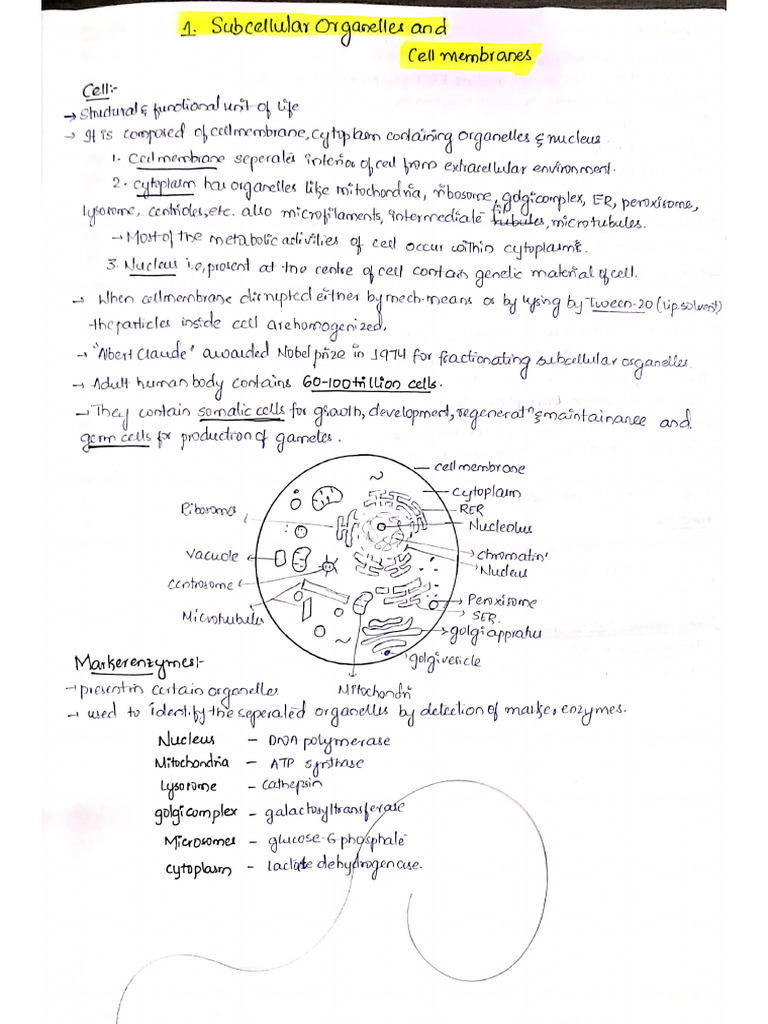 1. Subcellular Organelles and
Cell membranes
Cell:-
→ Structural & functional unit of life
→ It is composed of cellmembrane, cytoplasm containing organelles & nucleus.
1. Cell membrane seperates interior of cell from extracellular environment.
2. cytoplasm has organelles like mitochondria, ribosome, golgicomplex, ER, peroxisome,
lysosome, centrioles, etc. also microfilaments, intermediate fil, microtubules.
→ Most of the metabolic activities of cell occur within cytoplasm.
3. Nucleus i.e, present at the centre of cell contain genetic material of cell.
→ When cellmembrane disrupted either by mech. means or by lysing by Tween-20 (lip. solvent)
the particles inside cell are homogenized.
→ "Albert Claude" awarded Nobel prize in 1974 for fractionating subcellular organelles.
→ Adult human body contains 60-100 trillion cells.
→ They contain somatic cells for growth, development, regeneratn & maintainance and
germ cells for production of gametes.
cell membrane
cytoplasm
RER
Ribosomes
Nucleolus
vacuole
chromatin
Nucleus
centrosome
Peroxisome
SER.
Microtubules
golgi appratus
golgi vesicle
Mitochondri
Marker enzymes:-
→ present in certain organelles
→ used to identify the seperated organelles by detection of marker enzymes.
Nucleus – DNA polymerase
Mitochondria – ATP synthase
Lysosome – Cathepsin
golgi complex – galactosyltransferase
Microsomes – glucose-6-phosphate
cytoplasm – lactate dehydrogenase.